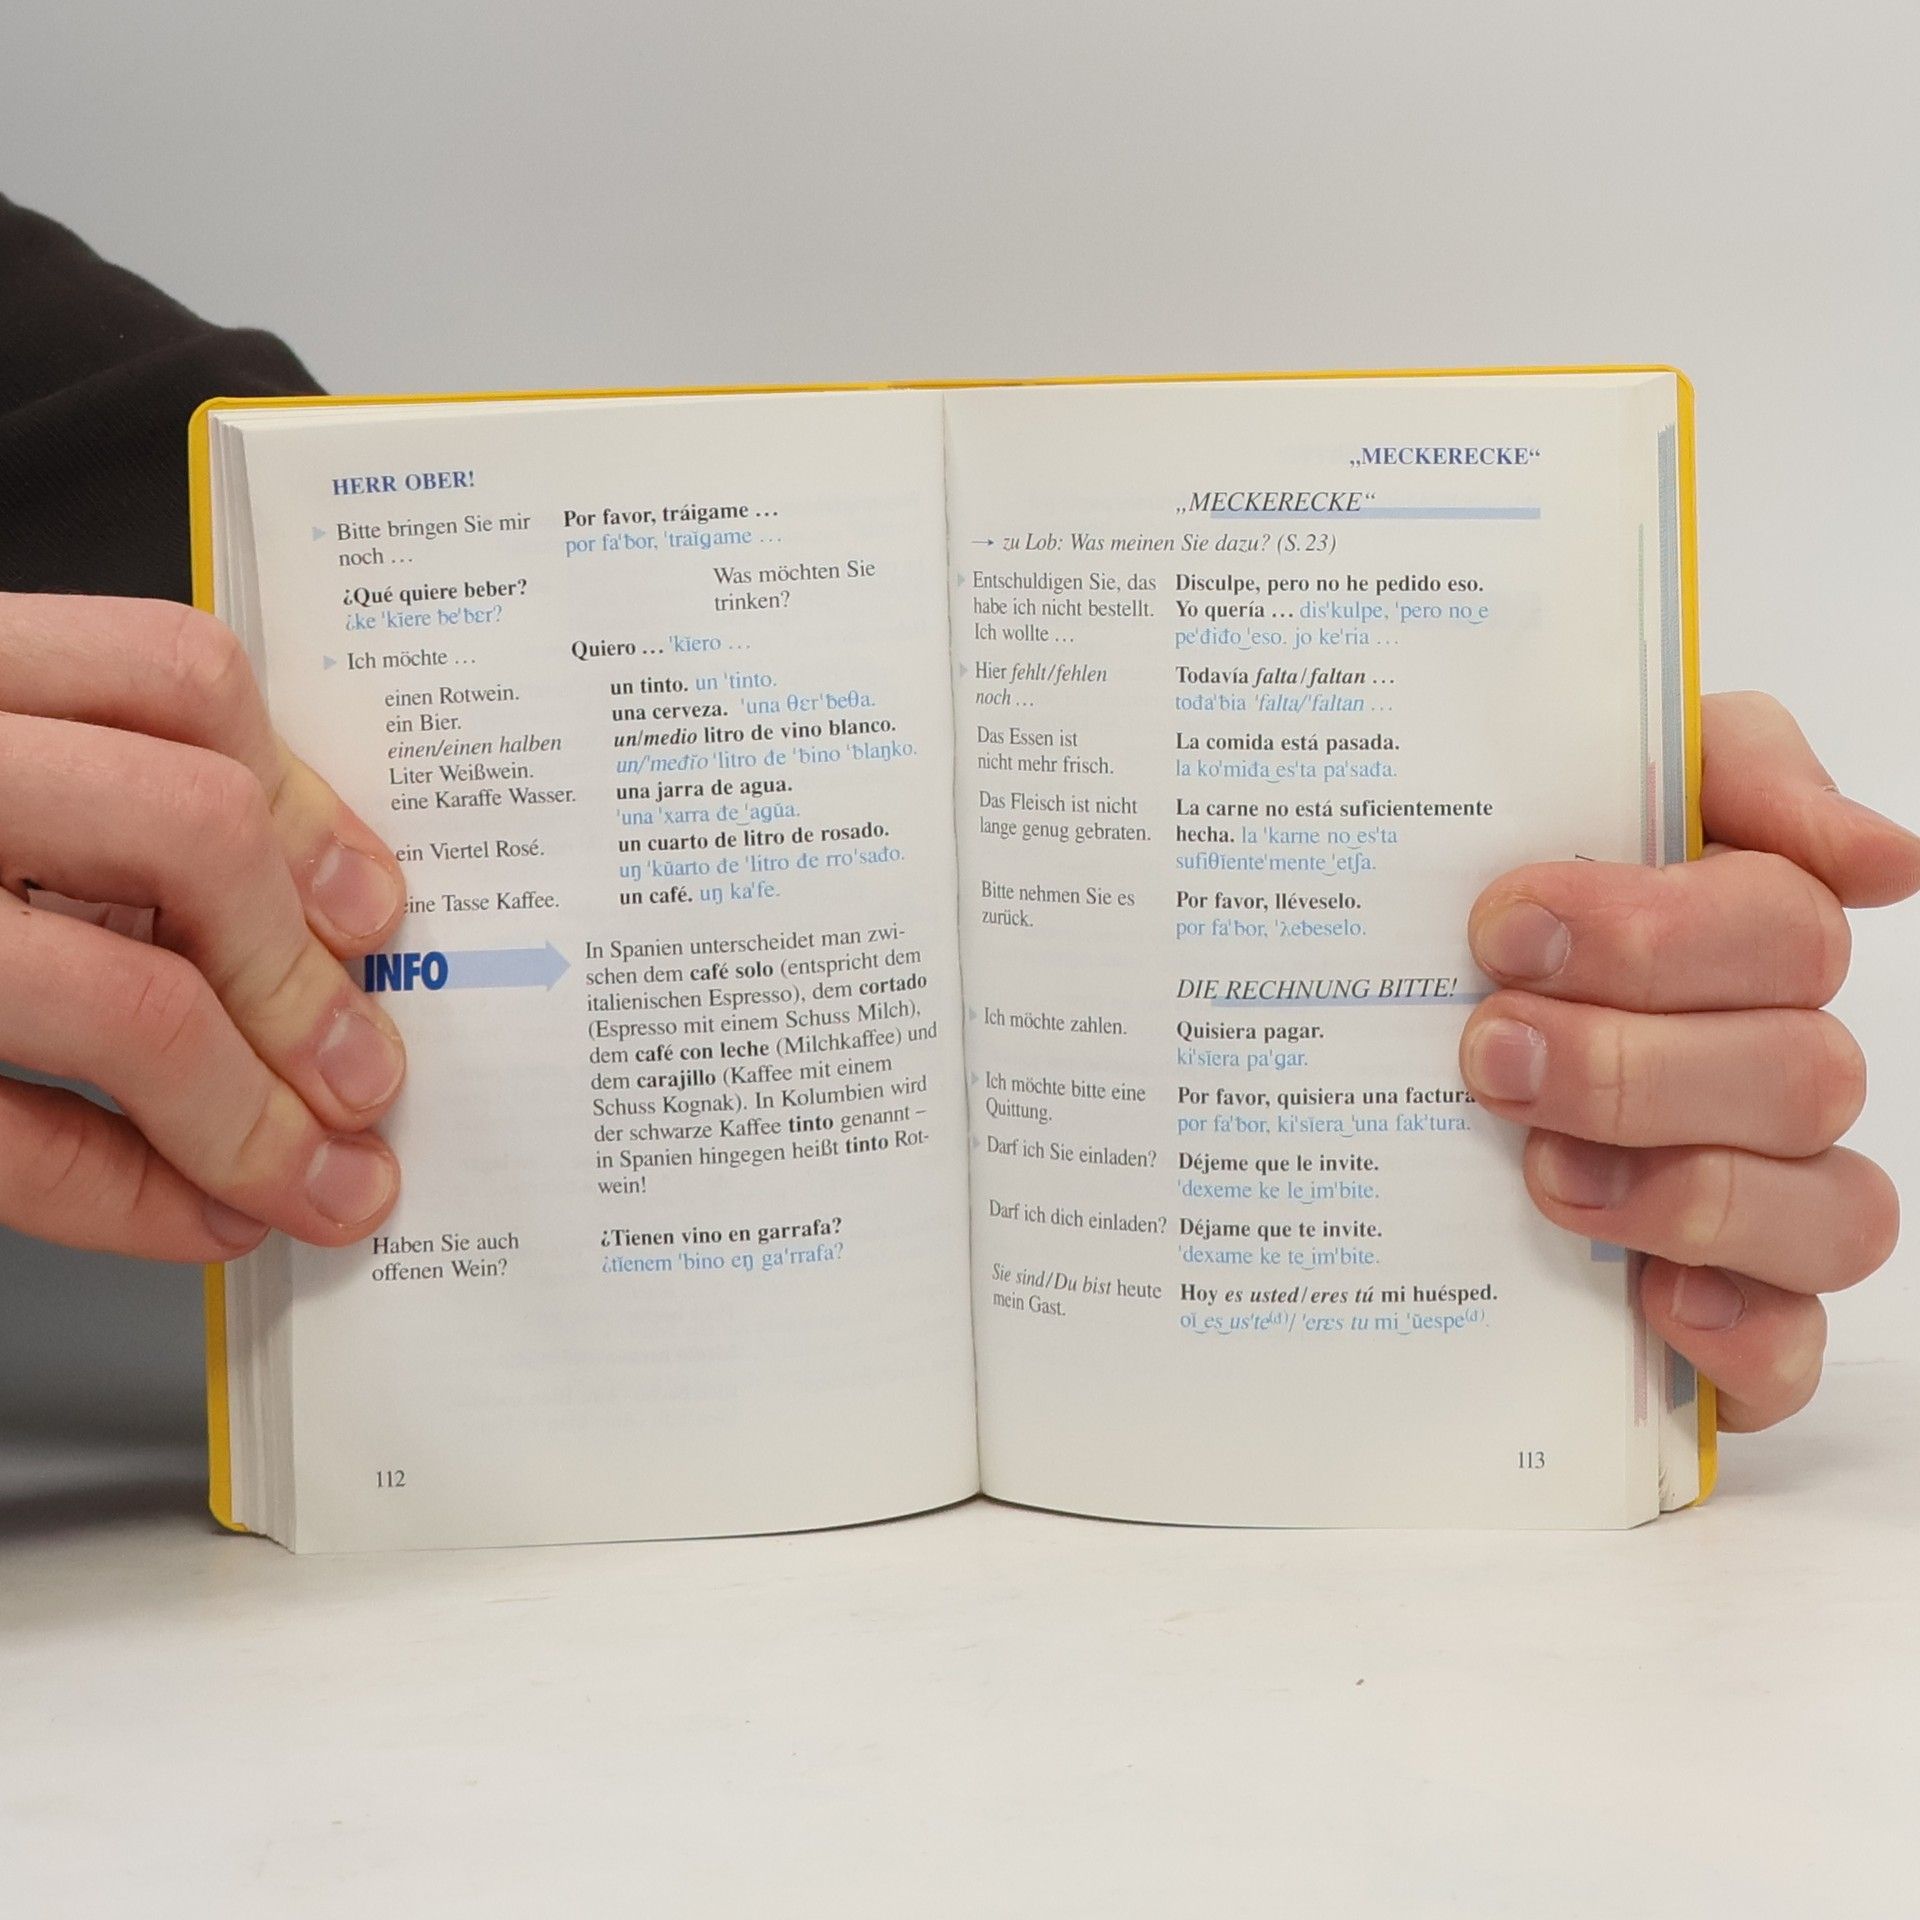 HERR OBER!
Bitte bringen Sie mir
noch …
Por favor, tráigame …
por fa'ƀor, 'traĭǥame …
¿Qué quiere beber?
¿ke 'kĭere ƀe'ƀɛr?
Was möchten Sie
trinken?
Ich möchte …
Quiero … 'kĭero …
einen Rotwein.
un tinto. un 'tinto.
ein Bier.
una cerveza. 'una θɛr'ƀeθa.
einen/einen halben
Liter Weißwein.
un/medio litro de vino blanco.
un/'međĭo 'litro đe 'ƀino 'ƀlaŋko.
eine Karaffe Wasser.
una jarra de agua.
'una 'xarra đe‿'aǥŭa.
ein Viertel Rosé.
un cuarto de litro de rosado.
uŋ 'kŭarto đe 'litro đe rro'sađo.
eine Tasse Kaffee.
un café. uŋ ka'fe.
INFO
In Spanien unterscheidet man zwi-
schen dem café solo (entspricht dem
italienischen Espresso), dem cortado
(Espresso mit einem Schuss Milch),
dem café con leche (Milchkaffee) und
dem carajillo (Kaffee mit einem
Schuss Kognak). In Kolumbien wird
der schwarze Kaffee tinto genannt –
in Spanien hingegen heißt tinto Rot-
wein!
Haben Sie auch
offenen Wein?
¿Tienen vino en garrafa?
¿tĭenem 'bino eŋ ga'rrafa?
112
„MECKERECKE“
„MECKERECKE“
→ zu Lob: Was meinen Sie dazu? (S. 23)
Entschuldigen Sie, das
habe ich nicht bestellt.
Ich wollte …
Disculpe, pero no he pedido eso.
Yo quería … dis'kulpe, 'pero no‿e
pe'điđo‿'eso. jo ke'ria …
Hier fehlt/fehlen
noch …
Todavía falta/faltan …
tođa'ƀia 'falta/'faltan …
Das Essen ist
nicht mehr frisch.
La comida está pasada.
la ko'miđa‿es'ta pa'sađa.
Das Fleisch ist nicht
lange genug gebraten.
La carne no está suficientemente
hecha. la 'karne no‿es'ta
sufiθĭente'mente‿'etʃa.
Bitte nehmen Sie es
zurück.
Por favor, lléveselo.
por fa'ƀor, 'ʎebeselo.
DIE RECHNUNG BITTE!
Ich möchte zahlen.
Quisiera pagar.
ki'sĭera pa'ǥar.
Ich möchte bitte eine
Quittung.
Por favor, quisiera una factura
por fa'ƀor, ki'sĭera‿'una fak'tura.
Darf ich Sie einladen?
Déjeme que le invite.
'dexeme ke le‿im'bite.
Darf ich dich einladen?
Déjame que te invite.
'dexame ke te‿im'bite.
Sie sind/Du bist heute
mein Gast.
Hoy es usted/eres tú mi huésped.
oĭ‿es‿us'te⁽đ⁾/ 'erɛs tu mi‿'ŭespe⁽đ⁾.
113